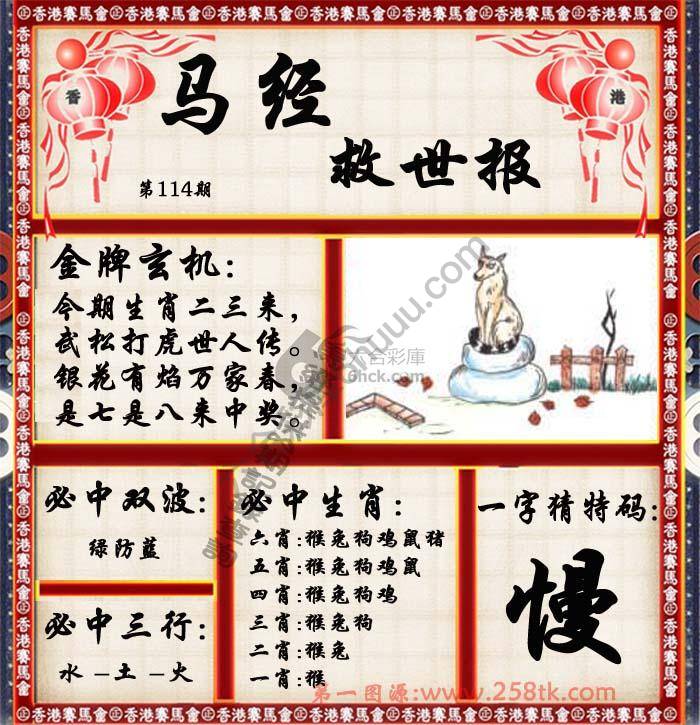 香港賽馬會
香 港
马经
救世报
第114期
金牌玄机:
今期生肖二三来,
武松打虎世人传。
银花有焰万家春,
是七是八来中奖。
六合彩庫
6hck.com
必中双波:
绿防蓝
必中三行:
水–土–火
必中生肖:
六肖:猴兔狗鸡鼠猪
五肖:猴兔狗鸡鼠
四肖:猴兔狗鸡
三肖:猴兔狗
二肖:猴兔
一肖:猴
一字猜特码:
慢
第一图源:www.258tk.com